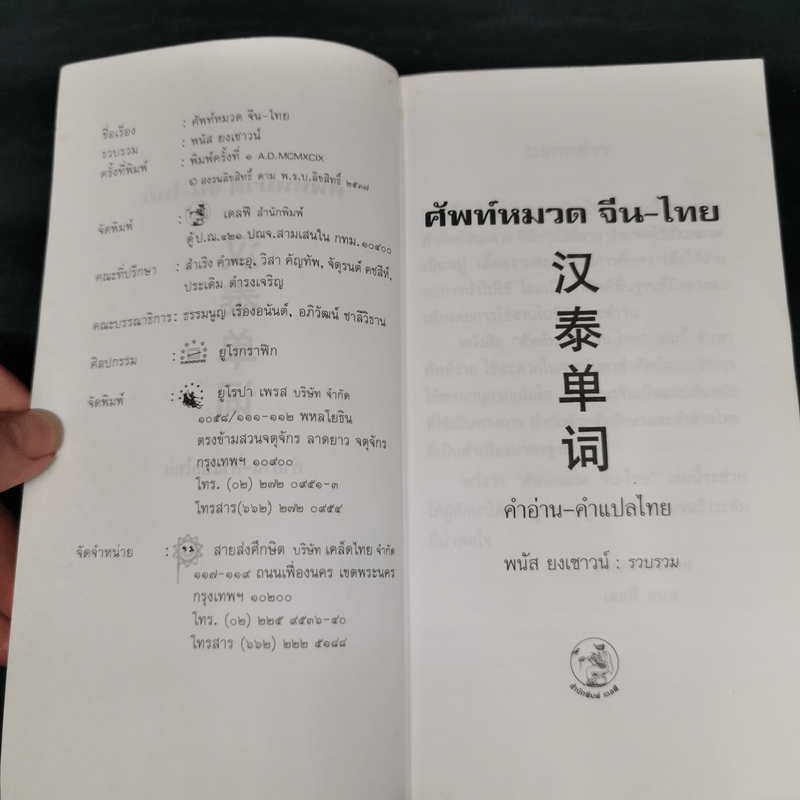 ชื่อเรื่อง : ศัพท์หมวด จีน-ไทย
รวบรวม : พนัส ยงเชาวน์
ครั้งที่พิมพ์ : พิมพ์ครั้งที่ ๑ A.D.MCMXCIX
© สงวนลิขสิทธิ์ ตาม พ.ร.บ.ลิขสิทธิ์ ๒๕๓๗
จัดพิมพ์ : เดลฟี สำนักพิมพ์
ตู้ป.ณ.๔๒๑ ปณจ.สามเสนใน กทม.๑๐๔๐๐
คณะที่ปรึกษา : สำเริง คำพะอุ, วิสา คัญทัพ, จัตุรนต์ คชสีห์,
ประเดิม ดำรงเจริญ
คณะบรรณาธิการ : ธรรมนูญ เรืองอนันต์, อภิวัฒน์ ชาลีวิธาน
ศิลปกรรม : ยูโรกราฟิก
จัดพิมพ์ : ยูโรปา เพรส บริษัท จำกัด
๑๐๕๘/๑๑๑-๑๑๒ พหลโยธิน
ตรงข้ามสวนจตุจักร ลาดยาว จตุจักร
กรุงเทพฯ ๑๐๙๐๐
โทร. (๐๒) ๒๗๒ ๐๙๕๑-๓
โทรสาร(๖๖๒) ๒๗๒ ๐๙๕๔
จัดจำหน่าย : สายส่งศึกษิต บริษัท เคล็ดไทย จำกัด
๑๑๗-๑๑๙ ถนนเฟื่องนคร เขตพระนคร
กรุงเทพฯ ๑๐๒๐๐
โทร. (๐๒) ๒๒๕ ๙๕๓๖-๔๐
โทรสาร (๖๖๒) ๒๒๒ ๕๑๘๘
ศัพท์หมวด จีน-ไทย
汉
泰
单
词
คำอ่าน-คำแปลไทย
พนัส ยงเชาวน์ : รวบรวม
สำนักพิมพ์ เดลฟี